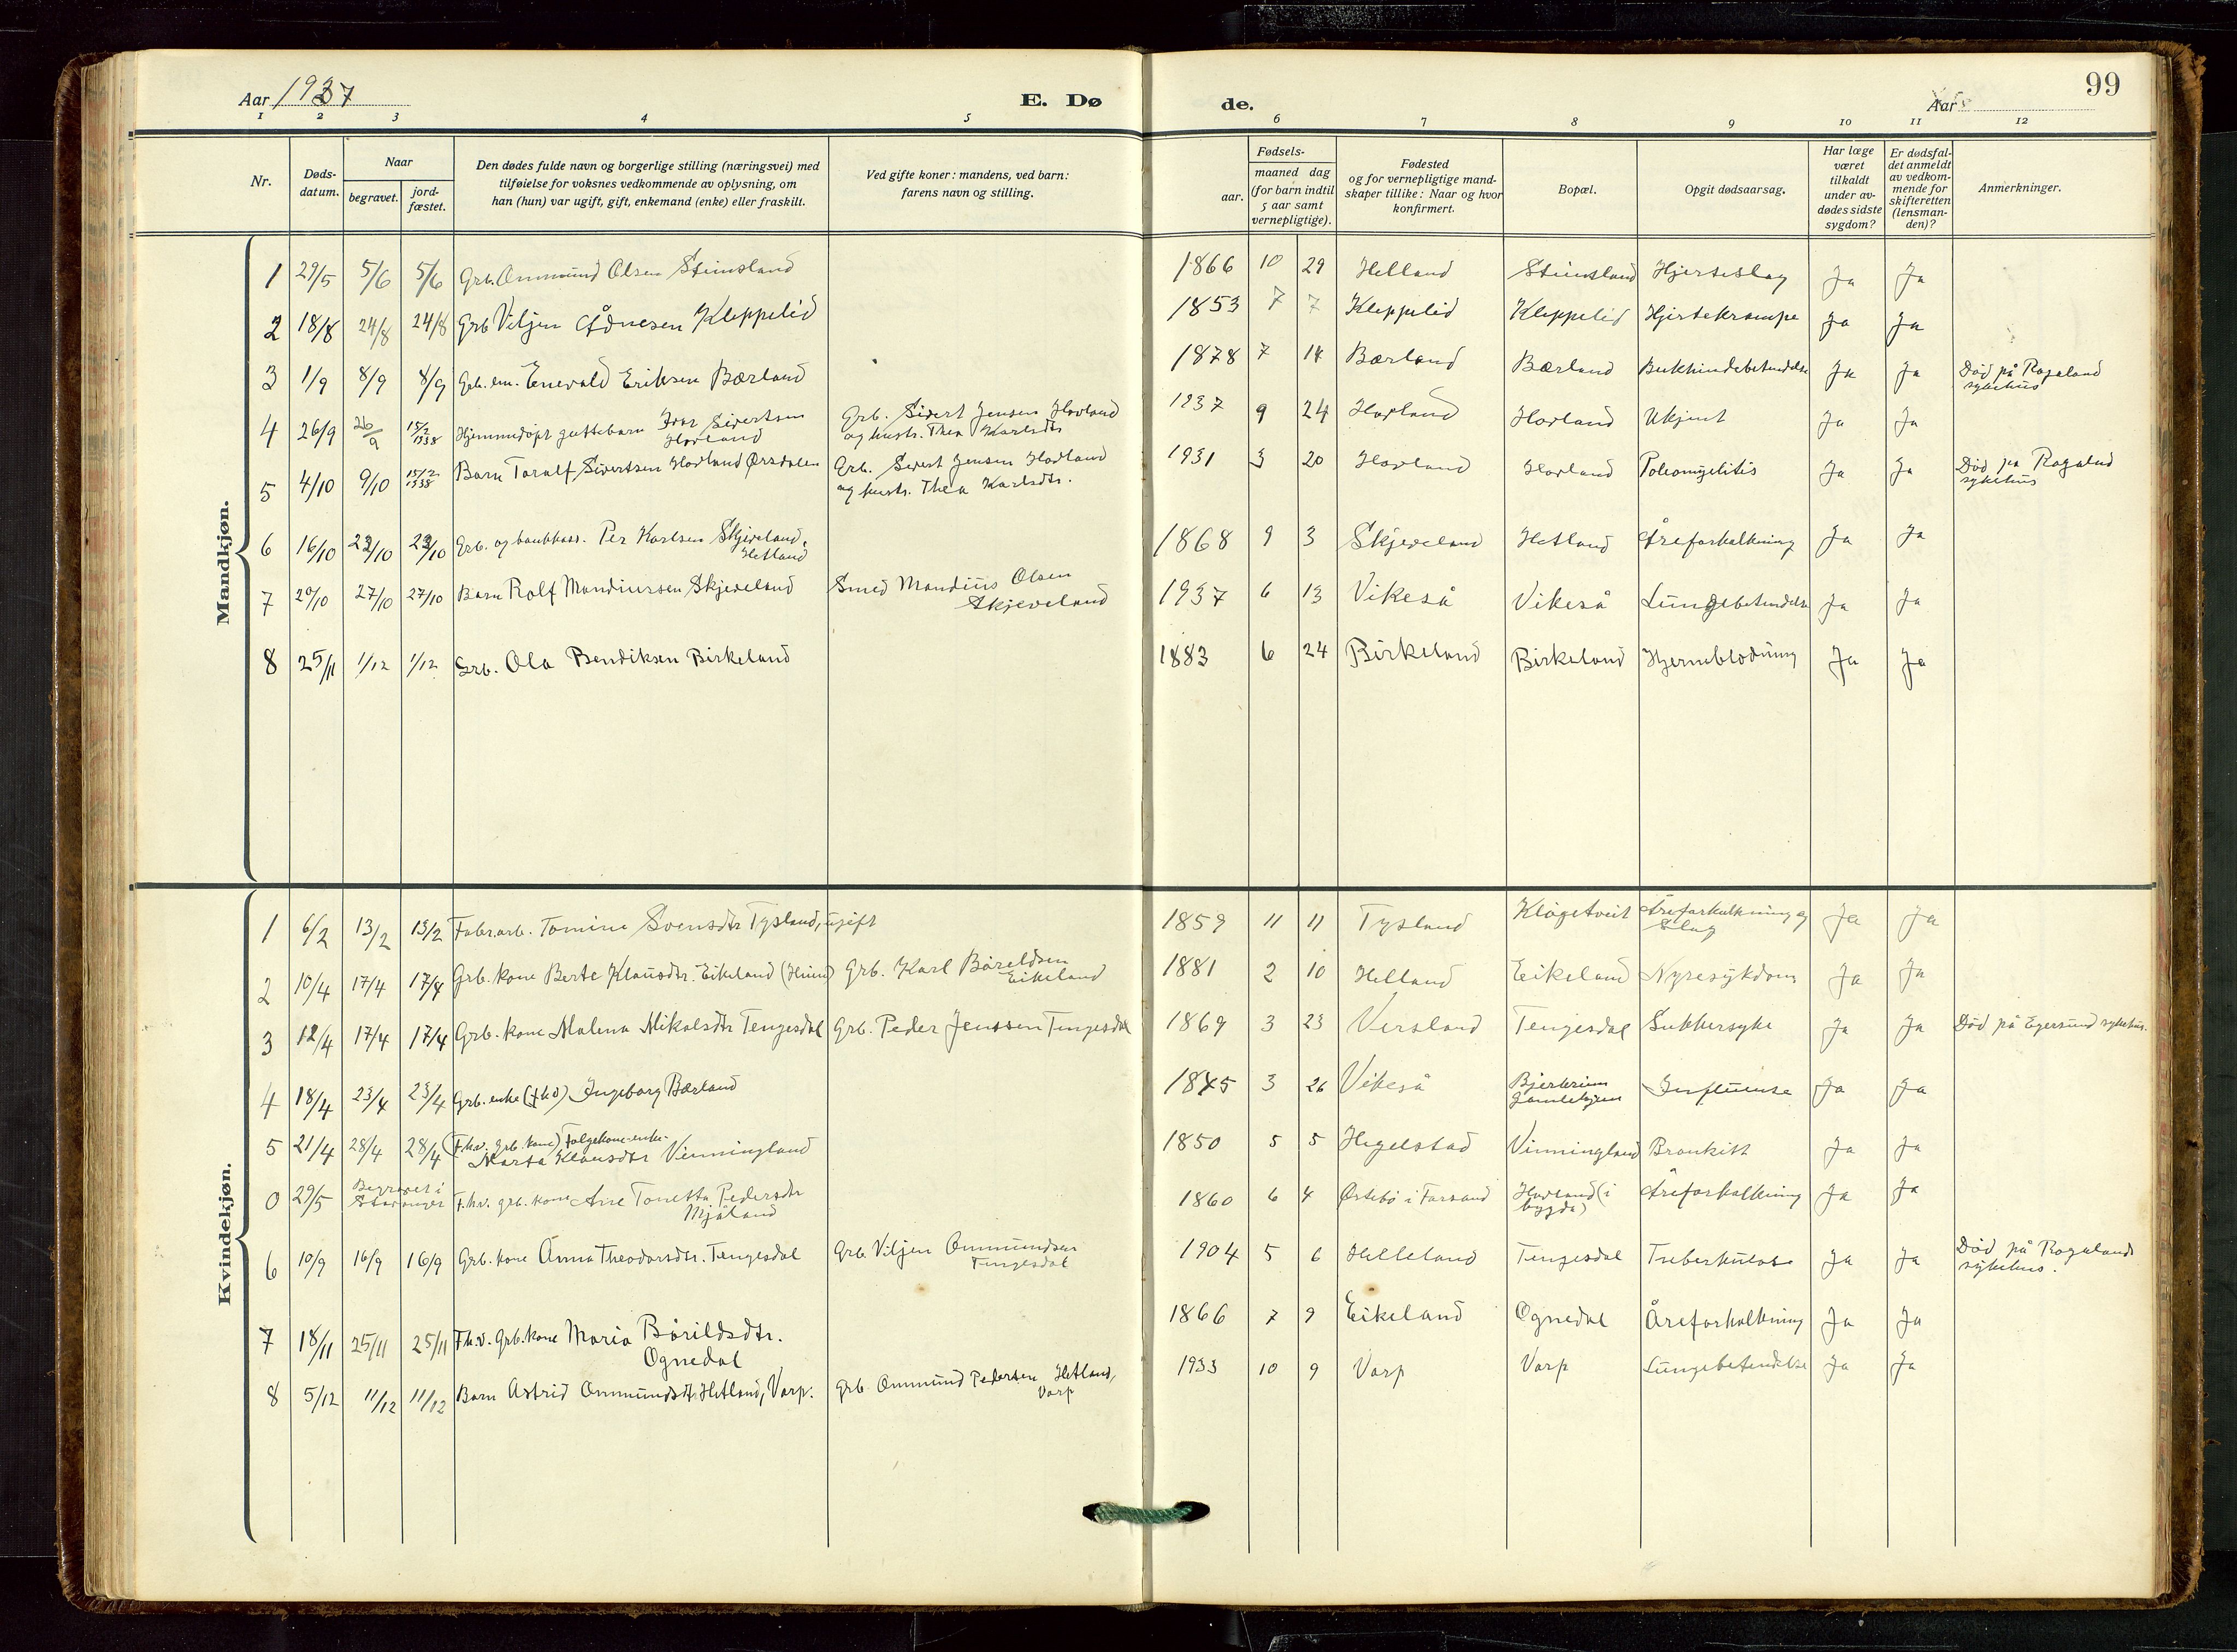 99
Aar 1937
E. Dø
de.
Aar
1 2 3 4 5 6 7 8 9 10 11 12
Nr.
Dødsdatum.
Naar
begravet.
jordfæstet.
Den dødes fulde navn og borgerlige stilling (næringsvei) med
tilføielse for voksnes vedkommende av oplysning, om
han (hun) var ugift, gift, enkemand (enke) eller fraskilt.
Ved gifte koner: mandens, ved barn:
farens navn og stilling.
Fødsels-
aar.
maaned dag
(for barn indtil
5 aar samt
vernepligtige).
Fødested
og for vernepligtige mand-
skaper tillike: Naar og hvor
konfirmert.
Bopæl.
Opgit dødsaarsag.
Har læge
været
tilkaldt
under av-
dødes sidste
sygdom?
Er dødsfal-
det anmeldt
av vedkom-
mende for
skifteretten
(lensman-
den)?
Anmerkninger.
Mandkjøn.
1 29/5 5/6 5/6 Grb. Ommund Olsen Stimsland 1866 10 29 Helland Stimsland Hjerteslag Ja Ja
2 18/8 24/8 24/8 Grb Viljen Ådnesen Kleppelid 1853 7 7 Kleppelid Kleppelid Hjertekrampe Ja Ja
3 1/9 8/9 8/9 Grb. em. Enevald Eriksen Bærland 1878 7 14 Bærland Bærland Bukhindebetendelse Ja Ja Död på Rogaland
sykehus
4 26/9 26/9 15/2 1938 Hjemmedöpt guttebarn Ivar Sivertsen
Hovland Grb. Sivert Jensen Hovland
og hustr. Thea Karlsdtr 1937 9 24 Hovland Hovland Ukjent Ja Ja
5 4/10 9/10 15/2 1938 Barn Toralf Sivertsen Hovland Ørsdalen Grb. Sivert Jensen Hovland
og hustr. Thea Karlsdtr. 1931 3 20 Hovland Hovland Poleomyelitis Ja Ja Död på Rogalnd
sykehus
6 16/10 23/10 23/10 Grb. og bankkass. Per Karlsen Skjeveland,
Hetland 1868 9 3 Skjeveland Hetland Åreforkalkning Ja Ja
7 20/10 27/10 27/10 Barn Rolf Mandiussen Skjeveland Smed Mandius Olsen
Skjeveland 1937 6 13 Vikeså Vikeså Lungebetendelse Ja Ja
8 25/11 1/12 1/12 Grb. Ola Bendiksen Birkeland 1883 6 24 Birkeland Birkeland Hjerneblödning Ja Ja
Kvindekjøn.
1 6/2 13/2 13/2 Fabr.arb. Tomine Svensdtr Tysland, ugift 1859 11 11 Tysland Klögetveit Åreforkalkning og
Slag Ja Ja
2 10/4 17/4 17/4 Grb. kone Berte Klausdtr. Eikeland Grb. Karl Båreldsen
Eikeland 1881 2 10 Helland Eikeland Nyresykdom Ja Ja
3 12/4 17/4 17/4 Grb. kone Malena Mikalsdtr Tengesdal Grb. Peder Jenssen Tengesdal 1869 3 23 Versland Tengesdal Sukkersyke Ja Ja Död på Egersund sykehus.
4 18/4 23/4 23/4 Grb. enke Ingeborg Bærland 1845 3 26 Vikeså Bjerkreim
Gamlehjem Influense Ja Ja
5 21/4 28/4 28/4 (F.h.v. grb. kone) Folgekone-enke-
Marta Klausdtr Vinningland 1850 5 5 Hegelstad Vinningland Bronkitt Ja Ja
0 29/5 Begravet i
Stavanger F.h.v. grb. kone Ane Tonetta Pedersdtr
Mjåland 1860 6 4 Østebö i Forsand Hovland (i
bygda) Åreforkalkning Ja Ja
6 10/9 16/9 16/9 Grb. kone Anna Theodorsdtr. Tengesdal Grb. Viljen Ommundsen
Tengesdal 1904 5 6 Helleland Tengesdal Tuberkulose Ja Ja Död på Rogalands
sykehus.
7 18/11 25/11 25/11 F.h.v. Grb. kone Maria Bårildsdtr.
Ognedal 1866 7 9 Eikeland Ognedal Åreforkalkning Ja Ja
8 5/12 11/12 11/12 Barn Astrid Ommundsdtr. Hetland, Varp. Grb. Ommund Pedersen Hetland,
Varp 1933 10 9 Varp Varp Lungebetendelse Ja Ja